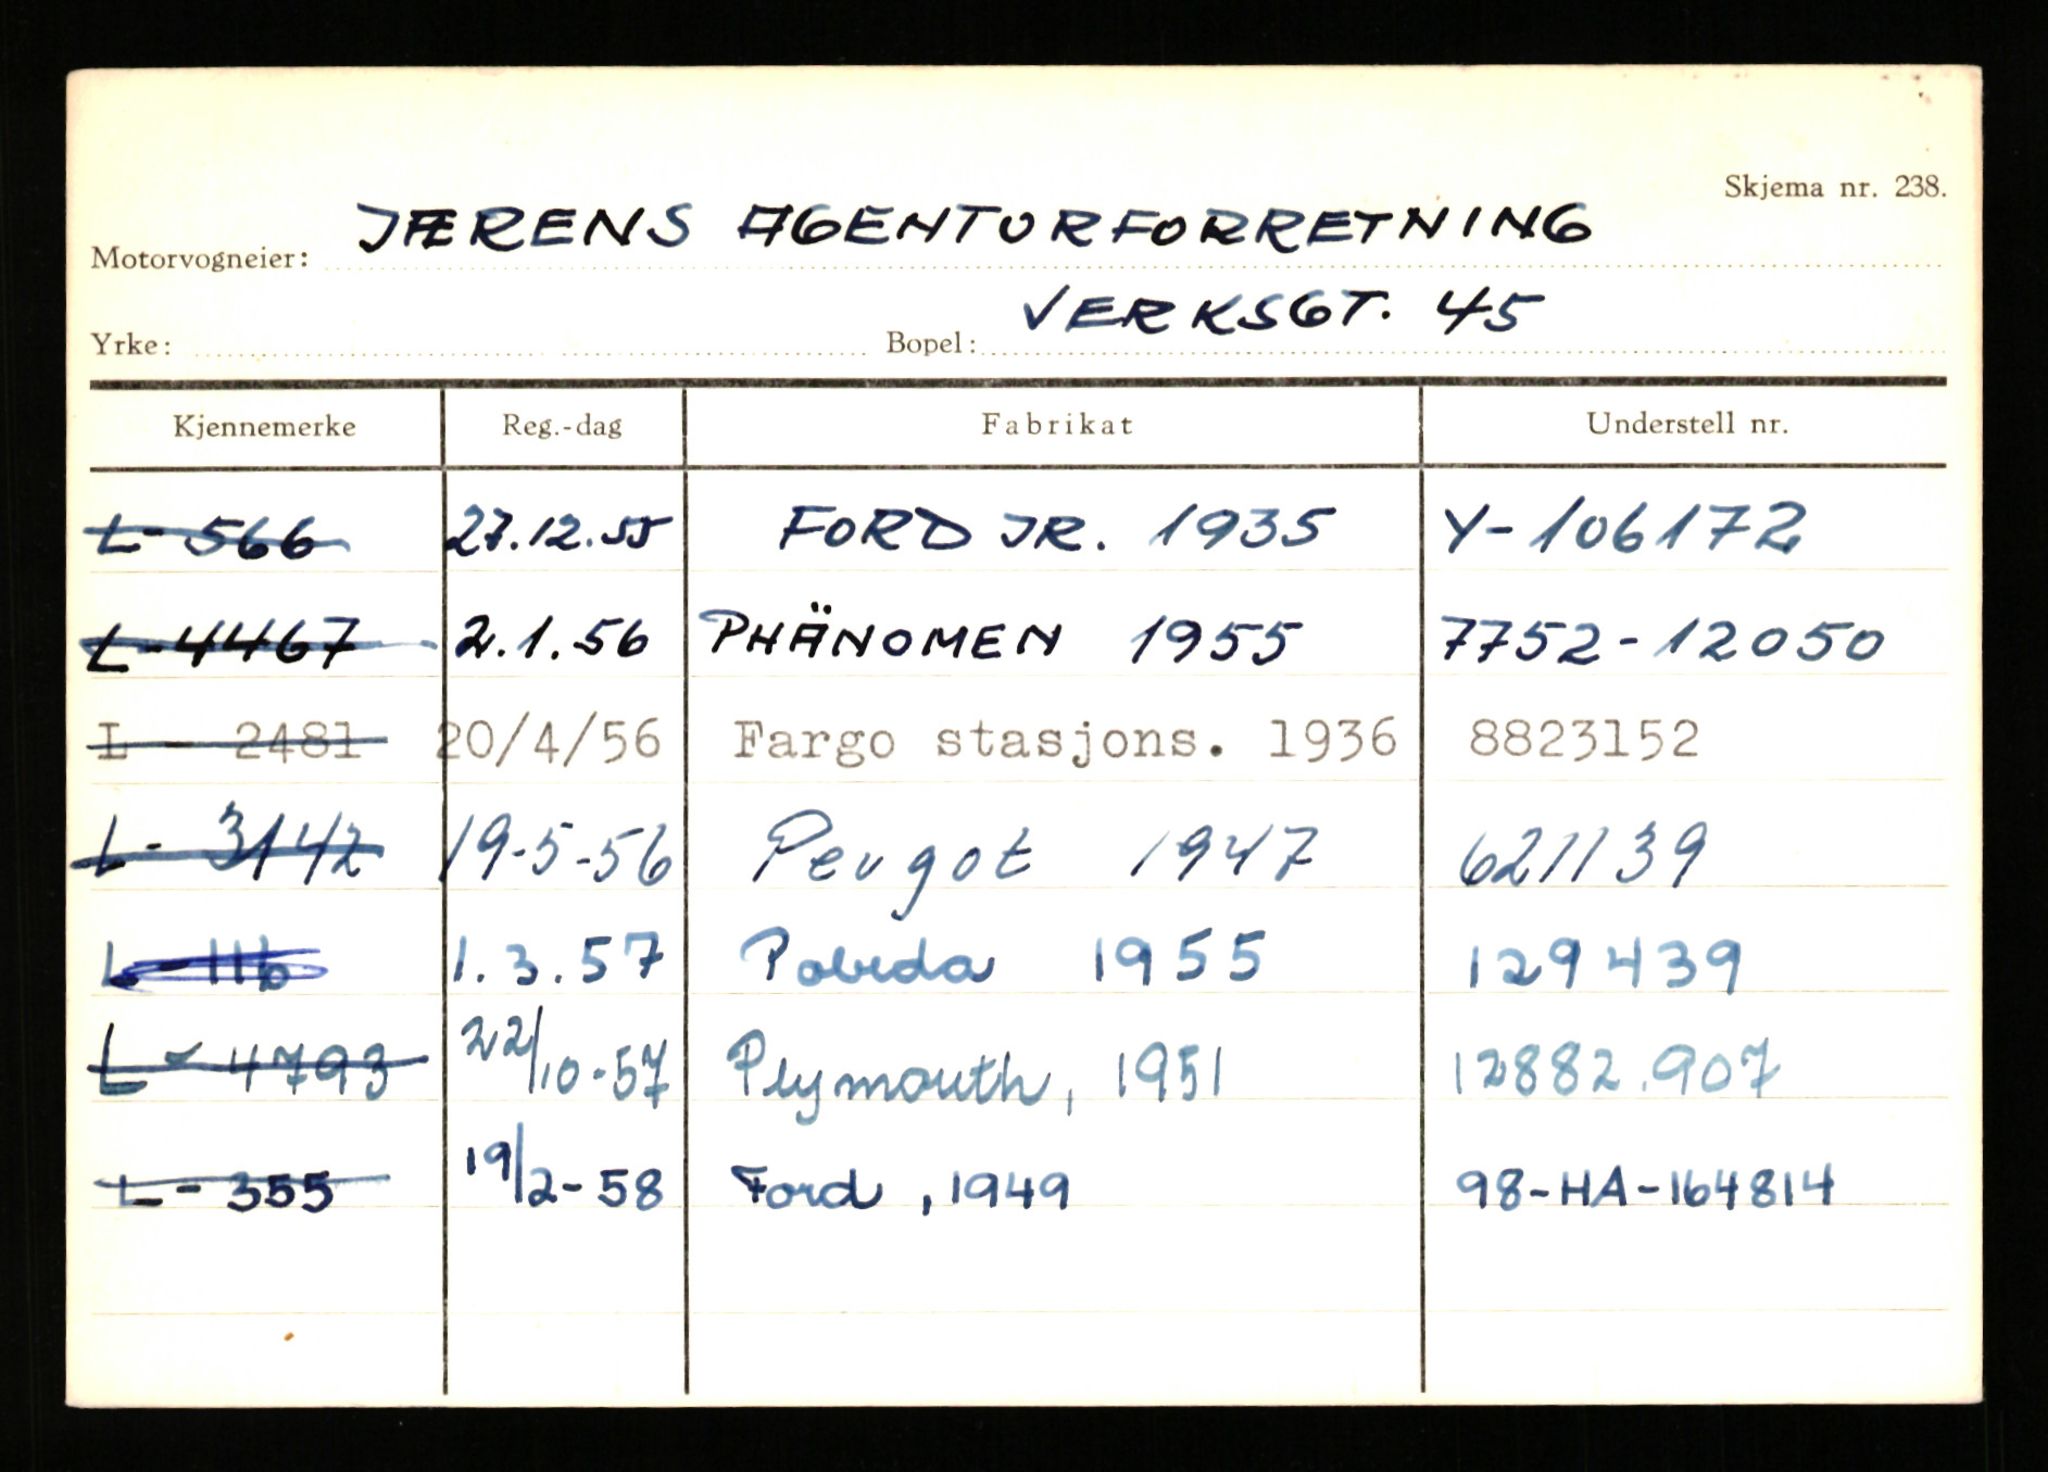 Skjema nr. 238.
Motorvogneier: JÆRENS AGENTURFORRETNING
Yrke: Bopel: VERKSGT. 45
Kjennemerke Reg.-dag Fabrikat Understell nr.
L-566 27.12.55 FORD JR. 1935 Y-106172
L-4467 2.1.56 PHÄNOMEN 1955 7752-12050
L - 2481 20/4/56 Fargo stasjons. 1936 8823152
L- 3142 19-5-56 Peugot 1947 621139
L-116 1.3.57 Pobeda 1955 129439
L - 4793 22/10-57 Plymouth, 1951 12882.907
L- 355 19/2-58 Ford, 1949 98-HA-164814